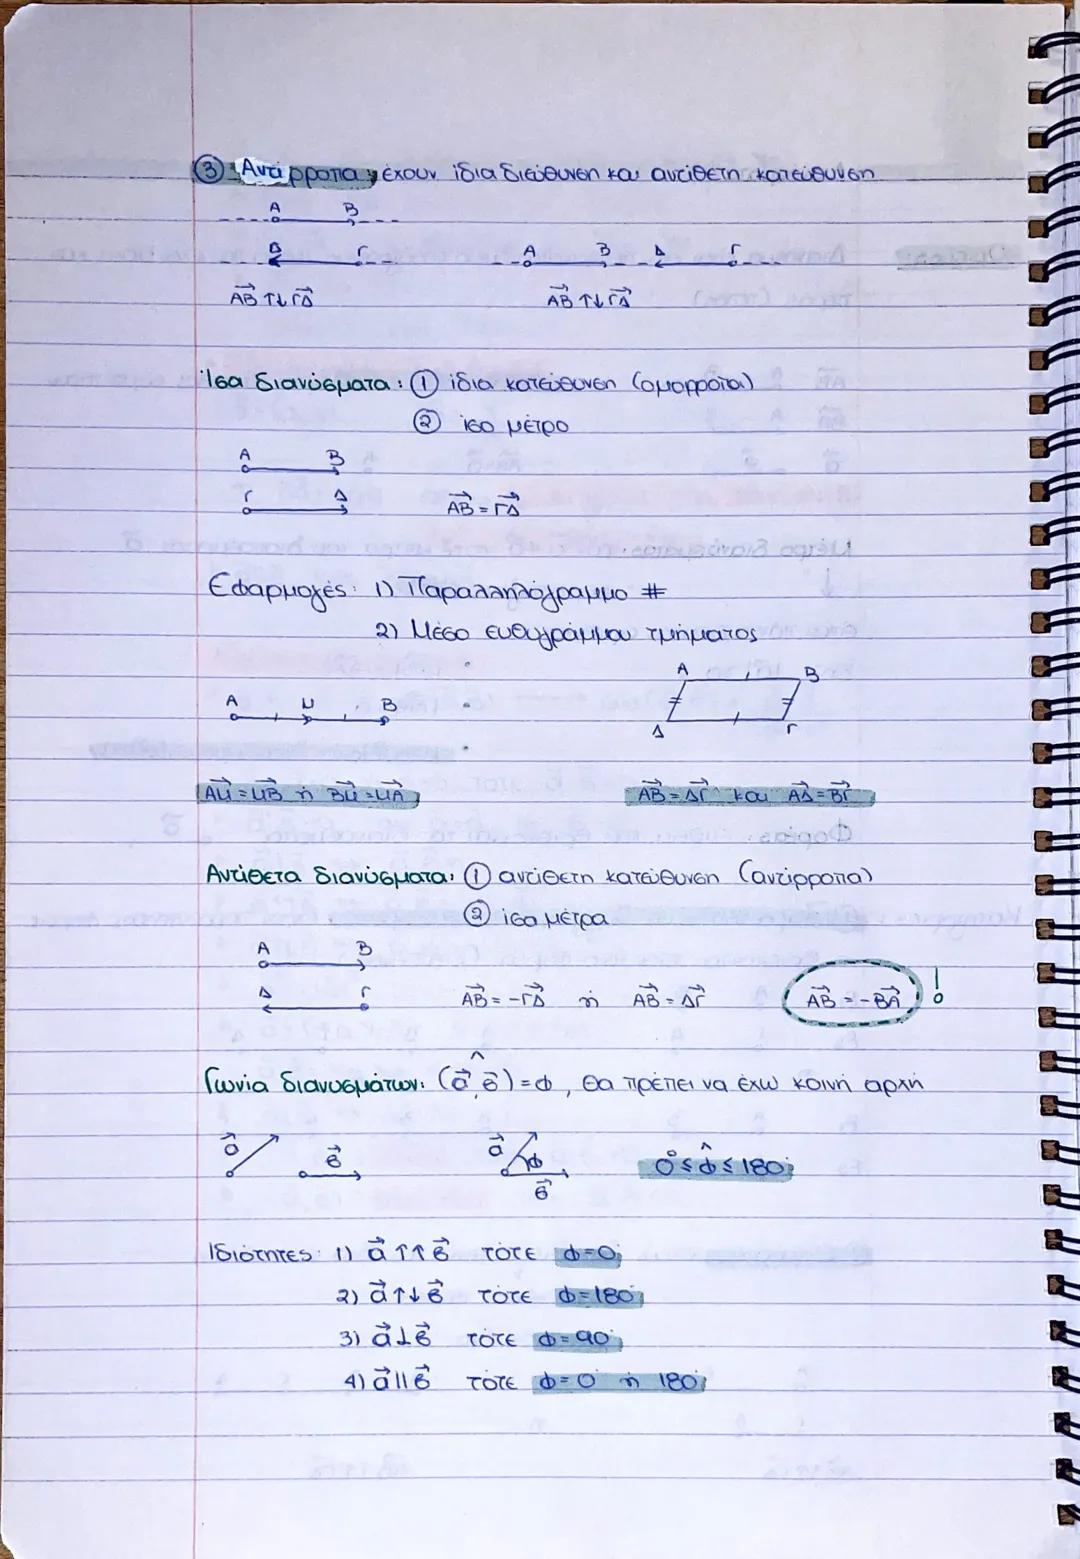 ③ Αντίρροπα: έχουν ίδια διεύθυνση και αντίθετη κατεύθυνση
Α Β
Δ Γ Α Β Δ Γ
ΑΒ↑↓ΓΔ ΑΒ↑↓ΓΔ
Ίσα διανύσματα: ① ίδια κατεύθυνση (ομόρροπα)
② ίσο μέτρο
Α Β
Γ Δ ΑΒ = ΓΔ
Εφαρμογές: 1) Παραλληλόγραμμο #
2) Μέσο ευθυγράμμου τμήματος
Α Μ Β
Α Β
Δ Γ
ΑΜ = ΜΒ ή ΒΜ = ΜΑ ΑΒ = ΔΓ και ΑΔ = ΒΓ
Αντίθετα διανύσματα: ① αντίθετη κατεύθυνση (αντίρροπα)
② ίσα μέτρα
Α Β
Δ Γ ΑΒ = -ΓΔ ή ΑΒ = ΔΓ ΑΒ = -ΒΑ !
Γωνία διανυσμάτων: (α, β) = φ, θα πρέπει να έχω κοινή αρχή
α β α φ β 0° ≤ φ ≤ 180°
Ιδιότητες: 1) α↑↑β τότε φ=0°
2) α↑↓β τότε φ=180°
3) α⊥β τότε φ=90°
4) α∥β τότε φ=0° ή 180°